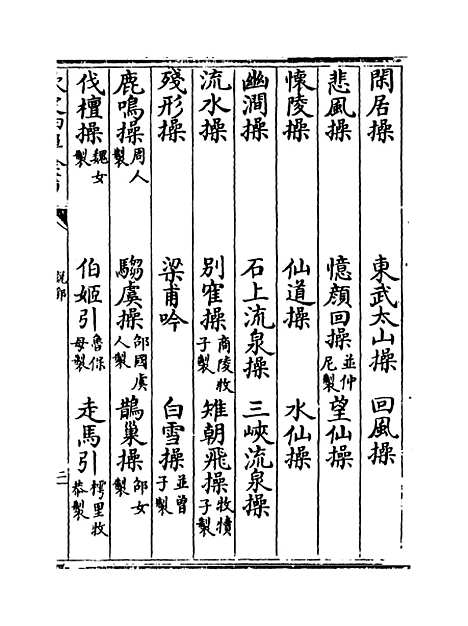 閑居操 東武太山操 回風操
悲風操 憶顏回操並仲尼製 望仙操
懷陵操 仙道操 水仙操
幽澗操 石上流泉操 三峽流泉操
流水操 別寉操商陵牧子製 雉朝飛操牧犢子製
殘形操 梁甫吟 白雪操並曾子製
鹿鳴操周人製 騶虞操邵國虞人製 鵲巢操邵女製
伐檀操魏女製 伯姬引魯保母製 走馬引樗里牧恭製
說郛